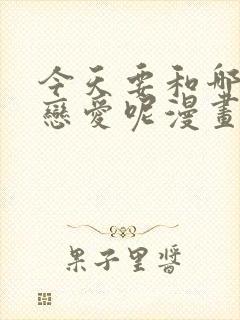 今天要和那
戀愛呢漫畫
果子里醬